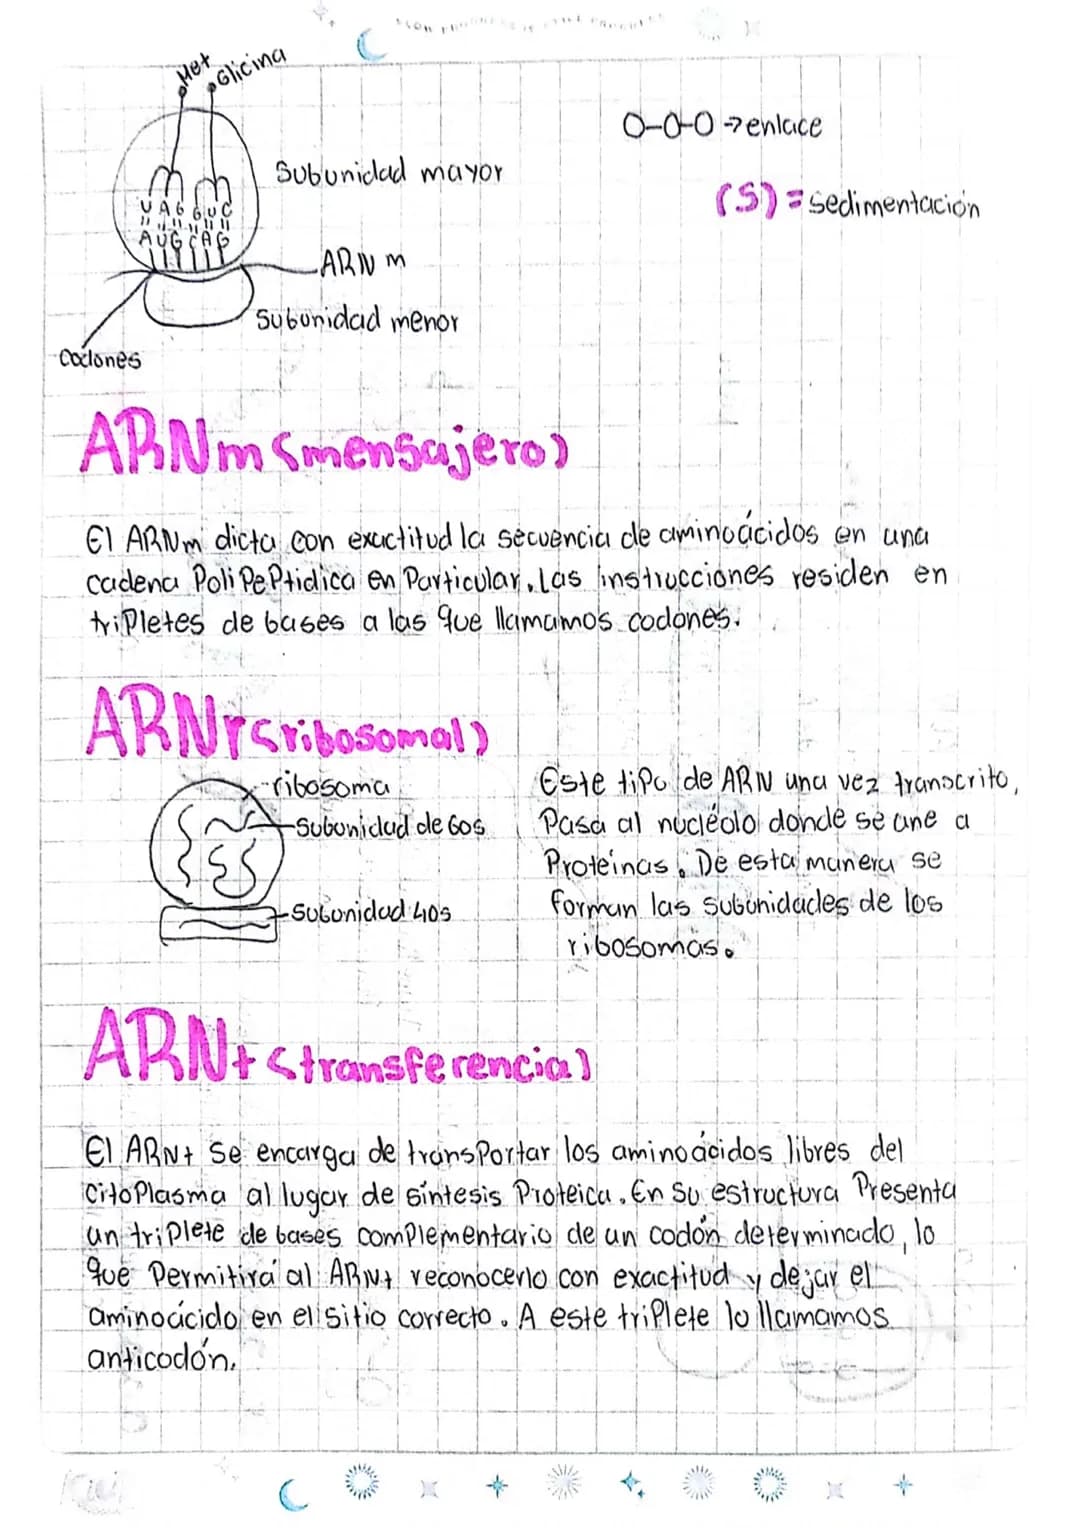 Met
Glicina
O-O-O → enlace
Subunidad mayor
(S) = sedimentación
UAG GUC
AUG CAG
ARN m
Subunidad menor
Codones
ARNm (mensajero)
El ARNm dicta con exactitud la secuencia de aminoácidos en una
cadena PoliPePtidica en Particular. Las instrucciones residen en
triPletes de bases a las que llamamos codones.
ARNr (ribosomal)
ribosoma
Subunidad de 60s
Subunidad 40s
Este tipo de ARN una vez transcrito,
Pasa al nucléolo donde se une a
Proteínas. De esta manera se
forman las subunidades de los
ribosomas.
ARNt (transferencia)
El ARNt se encarga de transPortar los aminoácidos libres del
citoPlasma al lugar de síntesis Proteica. En su estructura Presenta
un triplete de bases comPlementario de un codón determinado, lo
que Permitirá al ARNt reconocerlo con exactitud y dejar el
aminoácido en el sitio correcto. A este triPlete lo llamamos
anticodón.